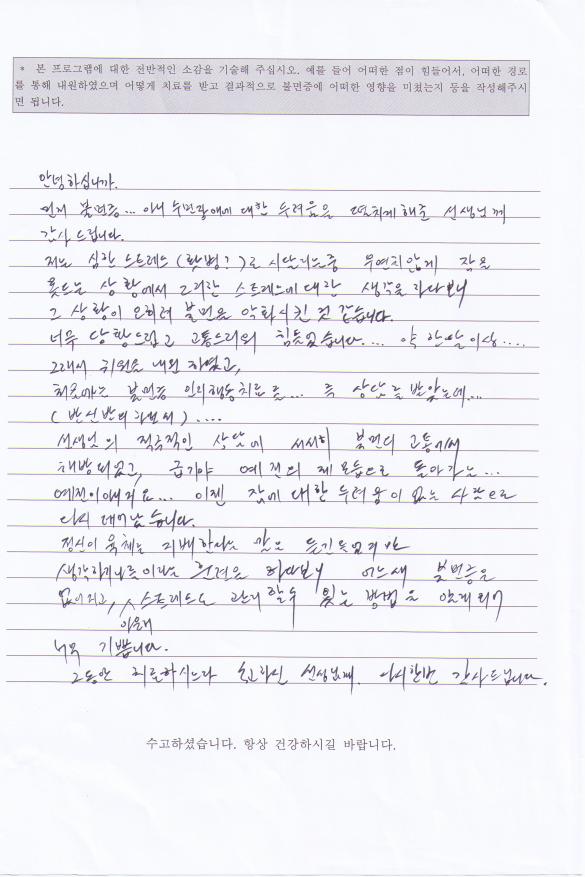 * 본 프로그램에 대한 전반적인 소감을 기술해 주십시오. 예를 들어 어떠한 점이 힘들어서, 어떠한 경로
를 통해 내원하였으며 어떻게 치료를 받고 결과적으로 불면증에 어떠한 영향을 미쳤는지 등을 작성해주시
면 됩니다.
안녕하십니까.
먼저 불면증... 아니 수면장애에 대한 두려움을 떨치게해준 선생님께
감사 드립니다.
저는 심한 스트레스 (홧병?)로 시달리는중 우연치않게 잠을
못드는 상황에서 그러한 스트레스에 대한 생각을 하다보니
그 상황이 오히려 불면을 악화시킨 것 같습니다.
너무 당황스럽고 고통스러워 힘들었습니다... 약 한달이상....
그래서 귀원을 내원 하였고,
처음에는 불면증 인지행동치료를... 즉 상담을 받았는데...
(반신반의 하면서) ....
선생님의 적극적인 상담에 서서히 불면의 고통에서
해방되었고, 급기야 예전의 제모습으로 돌아가는...
예전이 아녜요... 이젠 잠에 대한 두려움이 없는 사람으로
다시 태어났습니다.
정신이 육체를 지배한다는 말은 듣긴 했었지만
생각하기나름이라는 훈련을 하다보니 어느새 불면증은
없어지고, 스트레스도 관리할수 있는 방법을 알게되어
아울러
너무 기쁩니다.
그동안 치료하시느라 수고하신 선생님께 다시한번 감사드립니다.
수고하셨습니다. 항상 건강하시길 바랍니다.